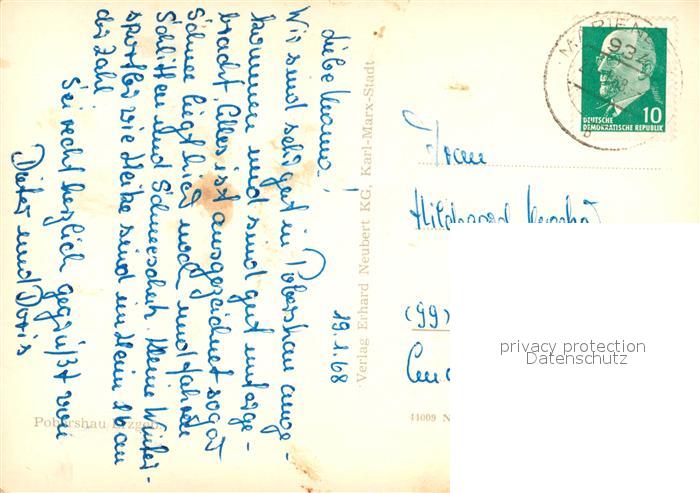 19.1.68
Liebe Mama!
Wir sind sehr gut in Pobershau ange-
kommen und sind gut unterge-
bracht. Alles ist ausgezeichnet sogar
Schnee liegt hier noch und
Schlitten und Schneeschuh. Kleine Winter-
sportler wie Heike sind in
der Zahl.
Sei recht herzlich gegrüßt von
Dieter und Doris
Pobershau Erzgeb.
Verlag Erhard Neubert KG, Karl-Marx-Stadt
MARIEN
934
10
DEUTSCHE
DEMOKRATISCHE REPUBLIK
Frau
Hildegard
(99)
44009 N
privacy protection
Datenschutz